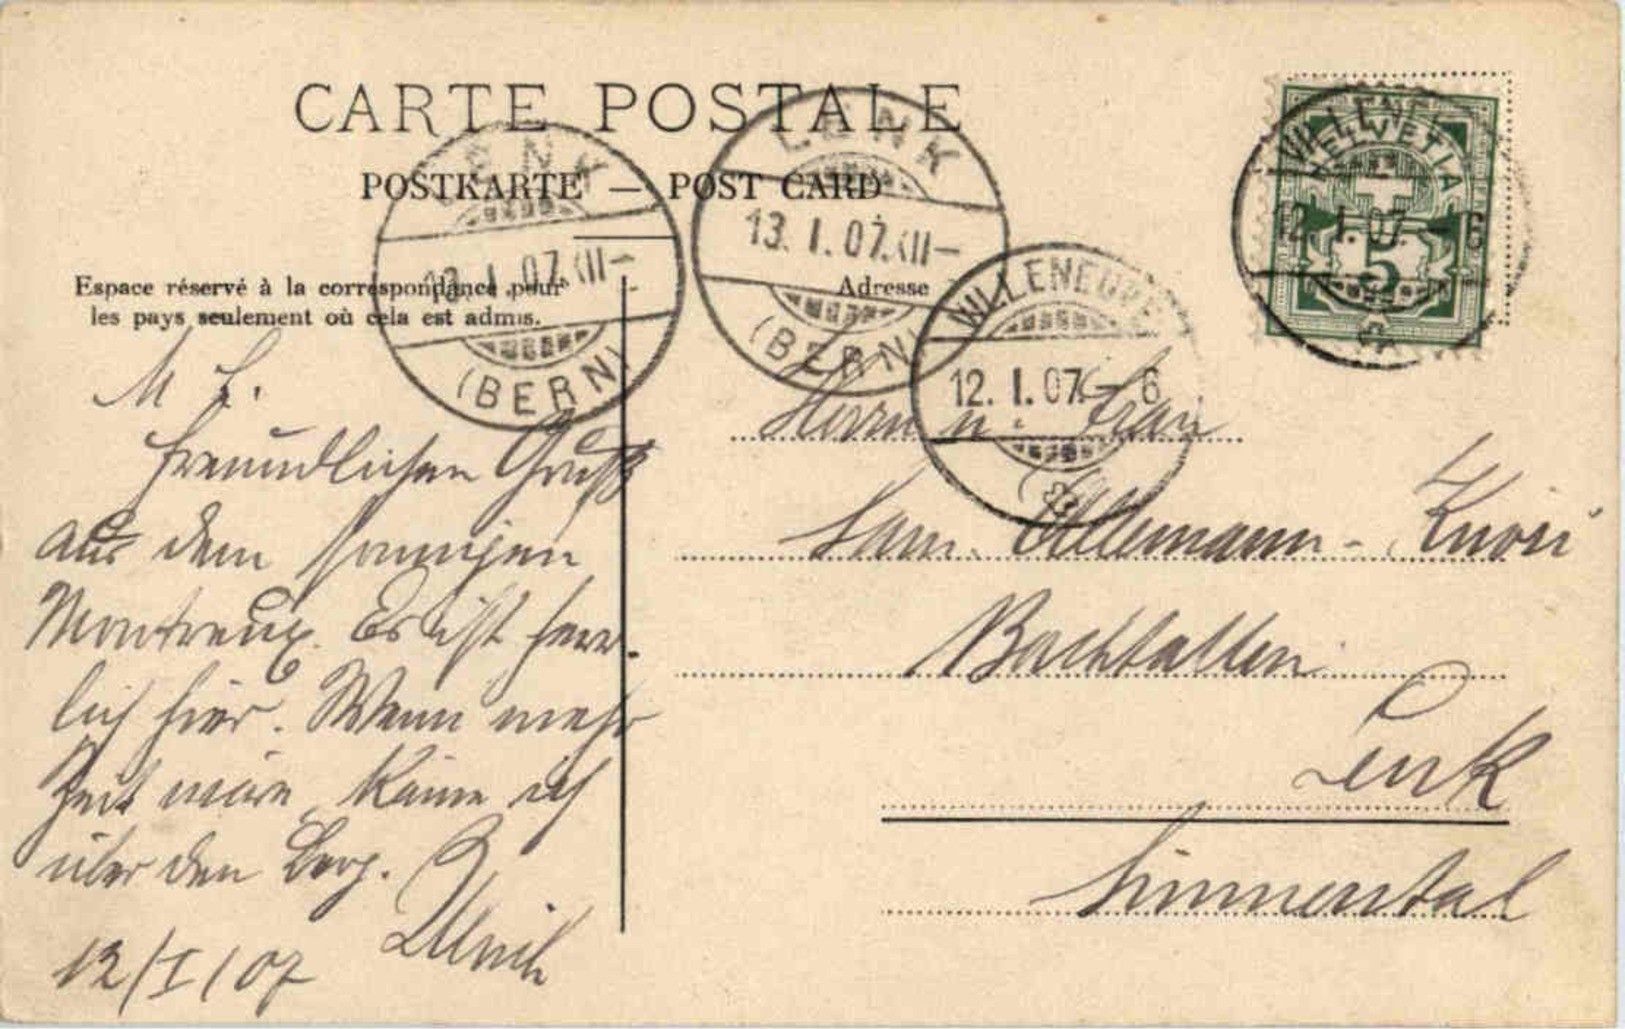 CARTE POSTALE
POSTKARTE — POST CARD
Espace réservé à la correspondance pour
les pays seulement où cela est admis.
Adresse
LENK
13. I. 07. XII–
(BERN)
LENK
13. I. 07. XII–
(BERN)
VILLENEUVE
12. I. 07. – 6
VILLENE
12. I. 07. – 6
HELVETIA
5
M L.
Freundlichen Gruß
aus dem sonnigen
Montreux. Es ist herr-
lich hier. Wenn mehr
Zeit wäre, käme ich
über den Berg.
Ulrich
12/I/07
Herrn u. Frau
Sam. Allemann-
Bachtallen
Lenk
Simmental